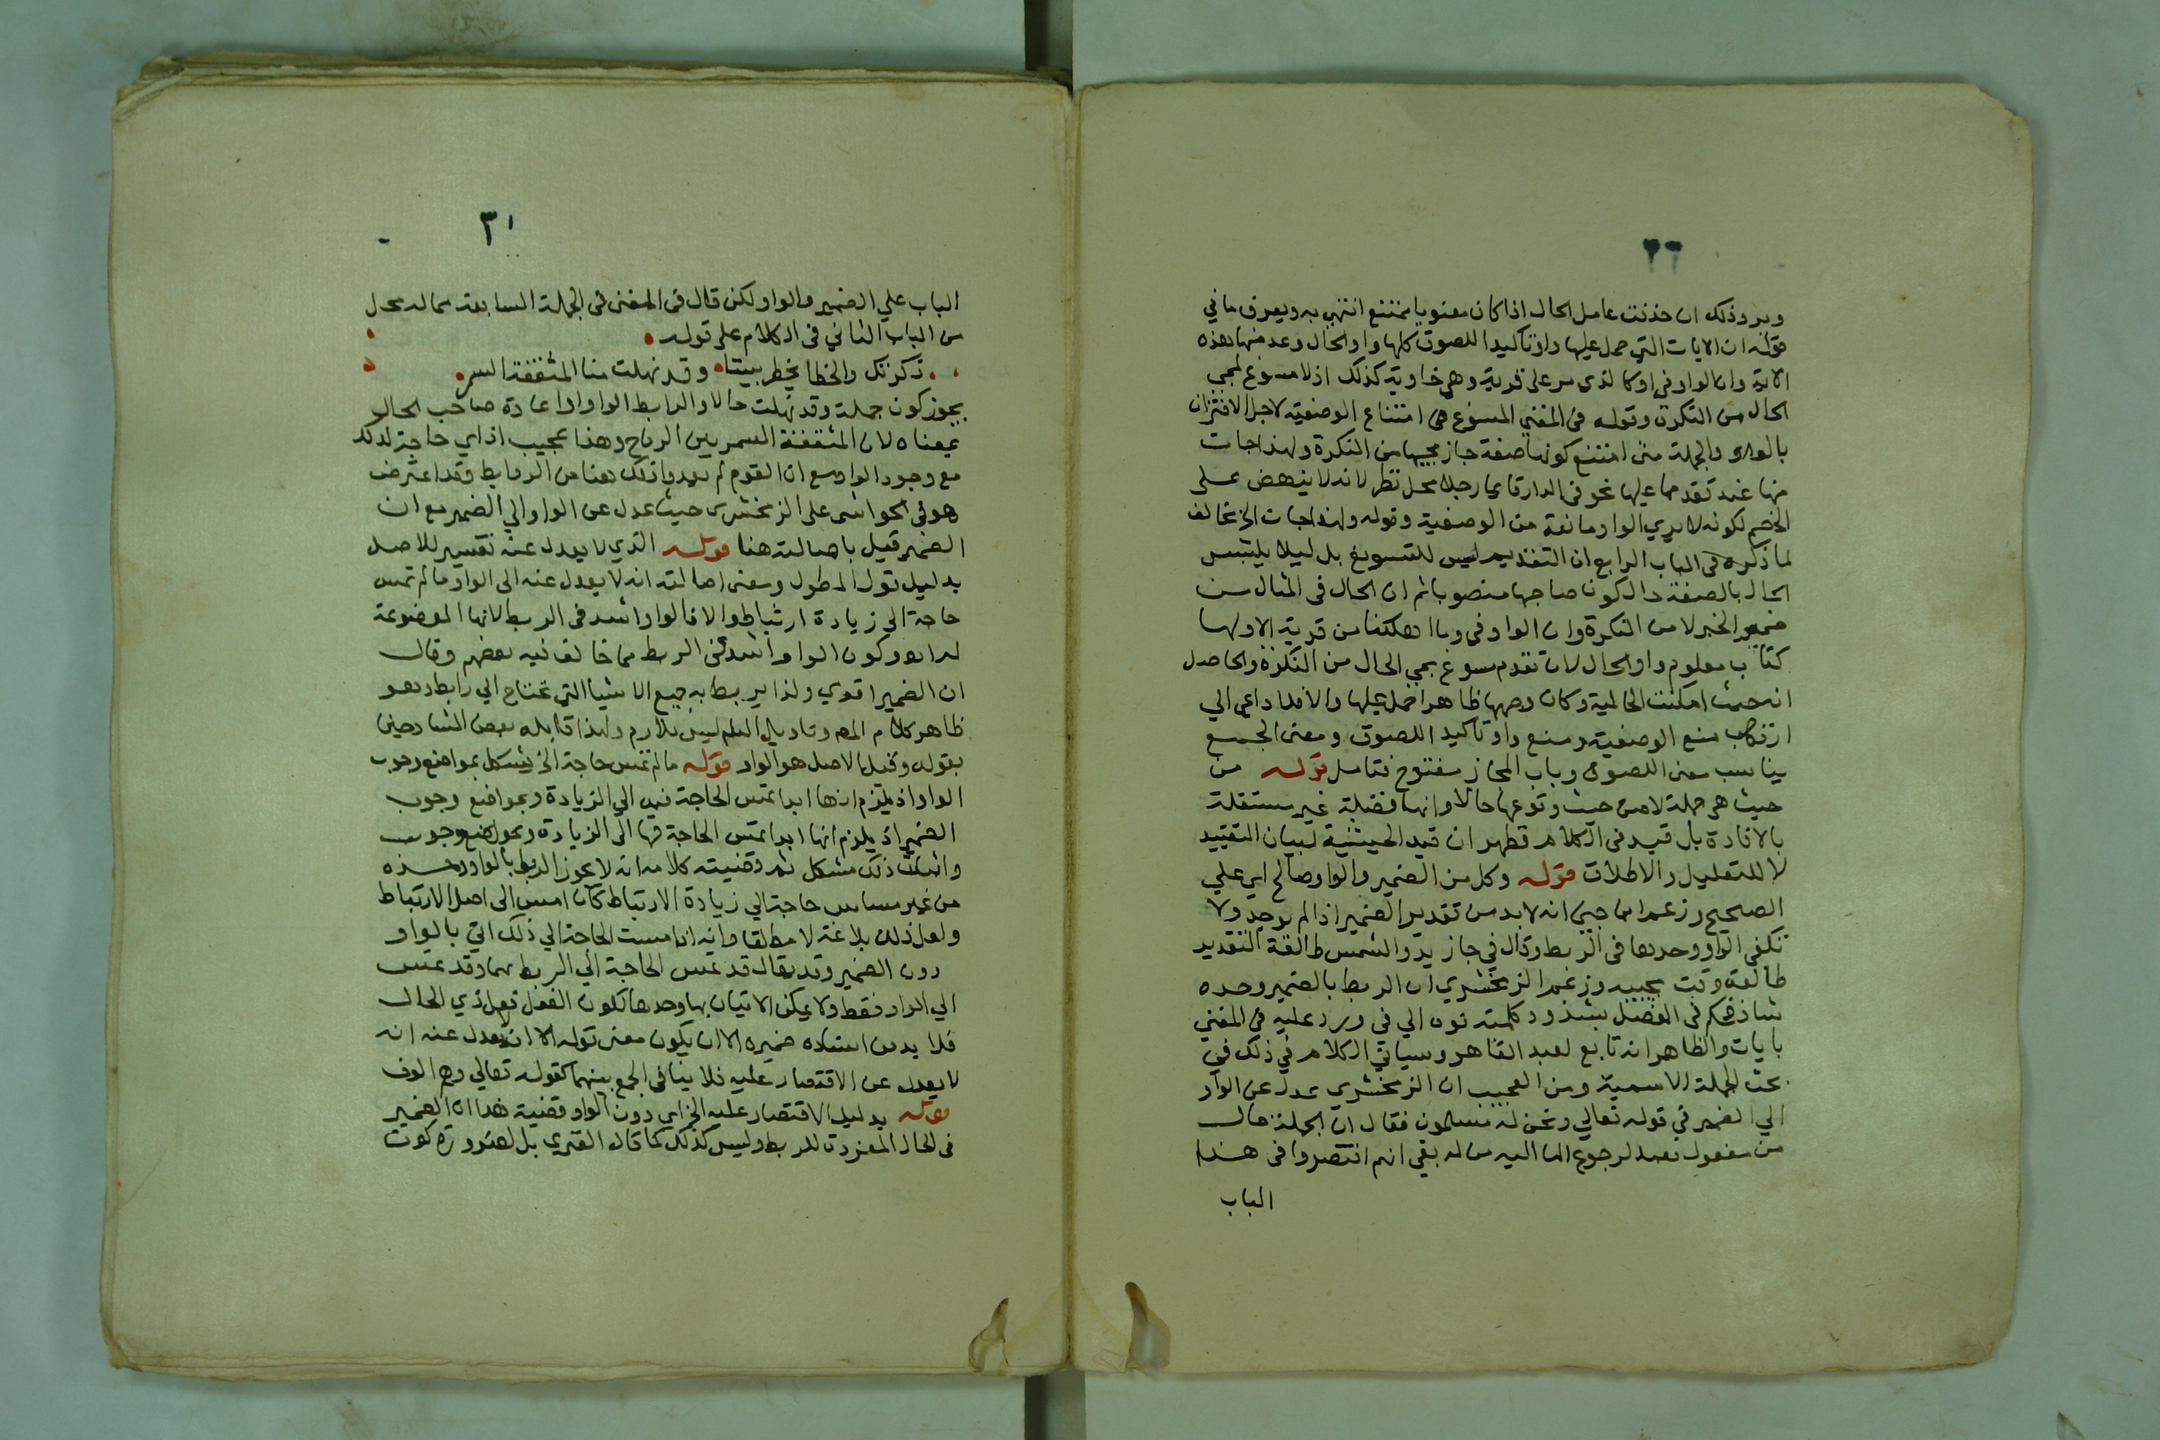 ٣٦
ويرد ذلك ان حذفت عامل الحال اذا كان معنويا ممتنع انتهى به ويعرف ما في
قوله ان الايات التي حمل عليها واو تاكيد اللصوق كلها واو الحال وعد منها هذه
الاية وان الواو في او كالذي مر على قرية وهي خاوية كذلك اذ لا مسوغ لمجي
الحال من النكرة وقوله في المغني المسوغ هي امتناع الوصفية لاجل الاقتران
بالواو والجملة متى امتنع كونها صفة جاز مجيها من النكرة ولهذا جات
منها عند تقدمها عليها نحو في الدار قايما رجل محل نظر لانه لا ينهض على
الخصم لكونه لا يري الواو مانعة من الوصفية وقوله ولهذا جات الخ مخالف
لما ذكره في الباب الرابع ان التقديم ليس للتسويغ بل ليلا يلتبس
الحال بالصفة حال كون صاحبها منصوبا ثم ان الحال في المثال من
ضمير الخبر لا من النكرة وان الواو في وما اهلكنا من قرية الا ولها
كتاب معلوم واو الحال لان تقدم مسوغ بمجي الحال من النكرة والحاصل
انه حيث امكنت الحالية وكان وجهها ظاهرا حمل عليها والا فلا داعي الي
ارتكاب منع الوصفية ومنع واو تاكيد اللصوق ومعنى الجمع
يناسب معنى اللصوق وباب المجاز مفتوح فتامل قوله من
حيث هي جملة لا من حيث وقوعها حالا وانها فضلة غير مستقلة
بالافادة بل قيد في الكلام فظهر ان قيد الحيثية لبيان التقييد
لا للتعليل والاطلاق قوله وكل من الضمير والواو صالح اي علي
الصحيح وزعم ابن جني انه لا بد من تقدير الضمير اذا لم يوجد ولا
تكفي الواو وحدها في الربط وقال في جا زيد والشمس طالعة التقدير
طالعة وقت مجييه وزعم الزمخشري ان الربط بالضمير وحده
شاذ فحكم في المفصل بشذوذ كلمته فوه الي في ورد عليه في المغني
بايات والظاهر انه تابع لعبد القاهر وسياتي الكلام في ذلك في
بحث الجملة الاسمية ومن العجيب ان الزمخشري عدل عن الواو
الي الضمير في قوله تعالي ونحن له مسلمون فقال ان الجملة حال
من مفعول نعبد لرجوع الها اليه من له بقي انهم اقتصروا في هذا
الباب
٣١
الباب علي الضمير والواو لكن قال في المغني في الجملة السابعة مما له محل
من الباب الثاني في الكلام على قوله
ذكرتك والخطا يخطر بيننا وقد نهلت منا المثقفة السمر
يجوز كون جملة وقد نهلت حالا والرابط الواو او اعادة صاحب الحال
بمعناه لان المثقفة السمر بين الرماح وهذا عجيب اذ اي حاجة لذلك
مع وجود الواو مع ان القوم لم يعدوا ذلك هنا من الروابط وقد اعترض
هو في الحواشي على الزمخشري حيث عدل عن الواو الي الضمير مع ان
الضمير قيل باصالته هنا قوله الذي لا يعدل عنه تفسير للاصل
بدليل قول المطول ومعنى اصالته انه لا يعدل عنه الى الواو ما لم تمس
حاجة الى زيادة ارتباط والا فالواو اشد في الربط لانها الموضوعة
له انتهى وكون الواو اشد في الربط مما خالف فيه بعضهم وقال
ان الضمير اقوي ولذا يربط به جميع الاشيا التي تحتاج الي رابط وهو
ظاهر كلام المص وتاويل العلم ليس بلازم ولهذا قابله بعض الشارحين
بقوله وقيل الاصل هو الواو قوله ما لم تمس حاجة الخ يشكل بمواضع وجوب
الواو اذ يلزم انها ابدا تمس الحاجة فيها الي الزيادة وبمواضع وجوب
الضمير اذ يلزم انها ابدا تمس الحاجة فيها الى الزيادة وبمواضع وجوب
ذلك مشكل ثم قضيته كلامه انه لا يجوز الربط بالواو وحده
من غير مساس حاجة الي زيادة الارتباط كان امس الى اصل الارتباط
ولعل ذلك بلاغة لا مطلقا وانه اذا مست الحاجة الي ذلك اتي بالواو
دون الضمير وقد يقال قد تمس الحاجة الي الربط بهما وقد تمس
الي الواو فقط ولا يمكن الاتيان بها وحدها لكون الفعل فعل ذي الحال
فلا بد من استتاره ضميره الا ان يكون معنى قوله الا ان يعدل عنه انه
لا يعدل عن الاقتصار عليه فلا ينافي الجمع بينهما كقوله تعالي وهم الوف
قوله بدليل الاقتصار عليه الخ اي دون الواو قضية هذا ان الضمير
في الحال المفردة للربط وليس كذلك كما قال الفنري بل لضرورة كون